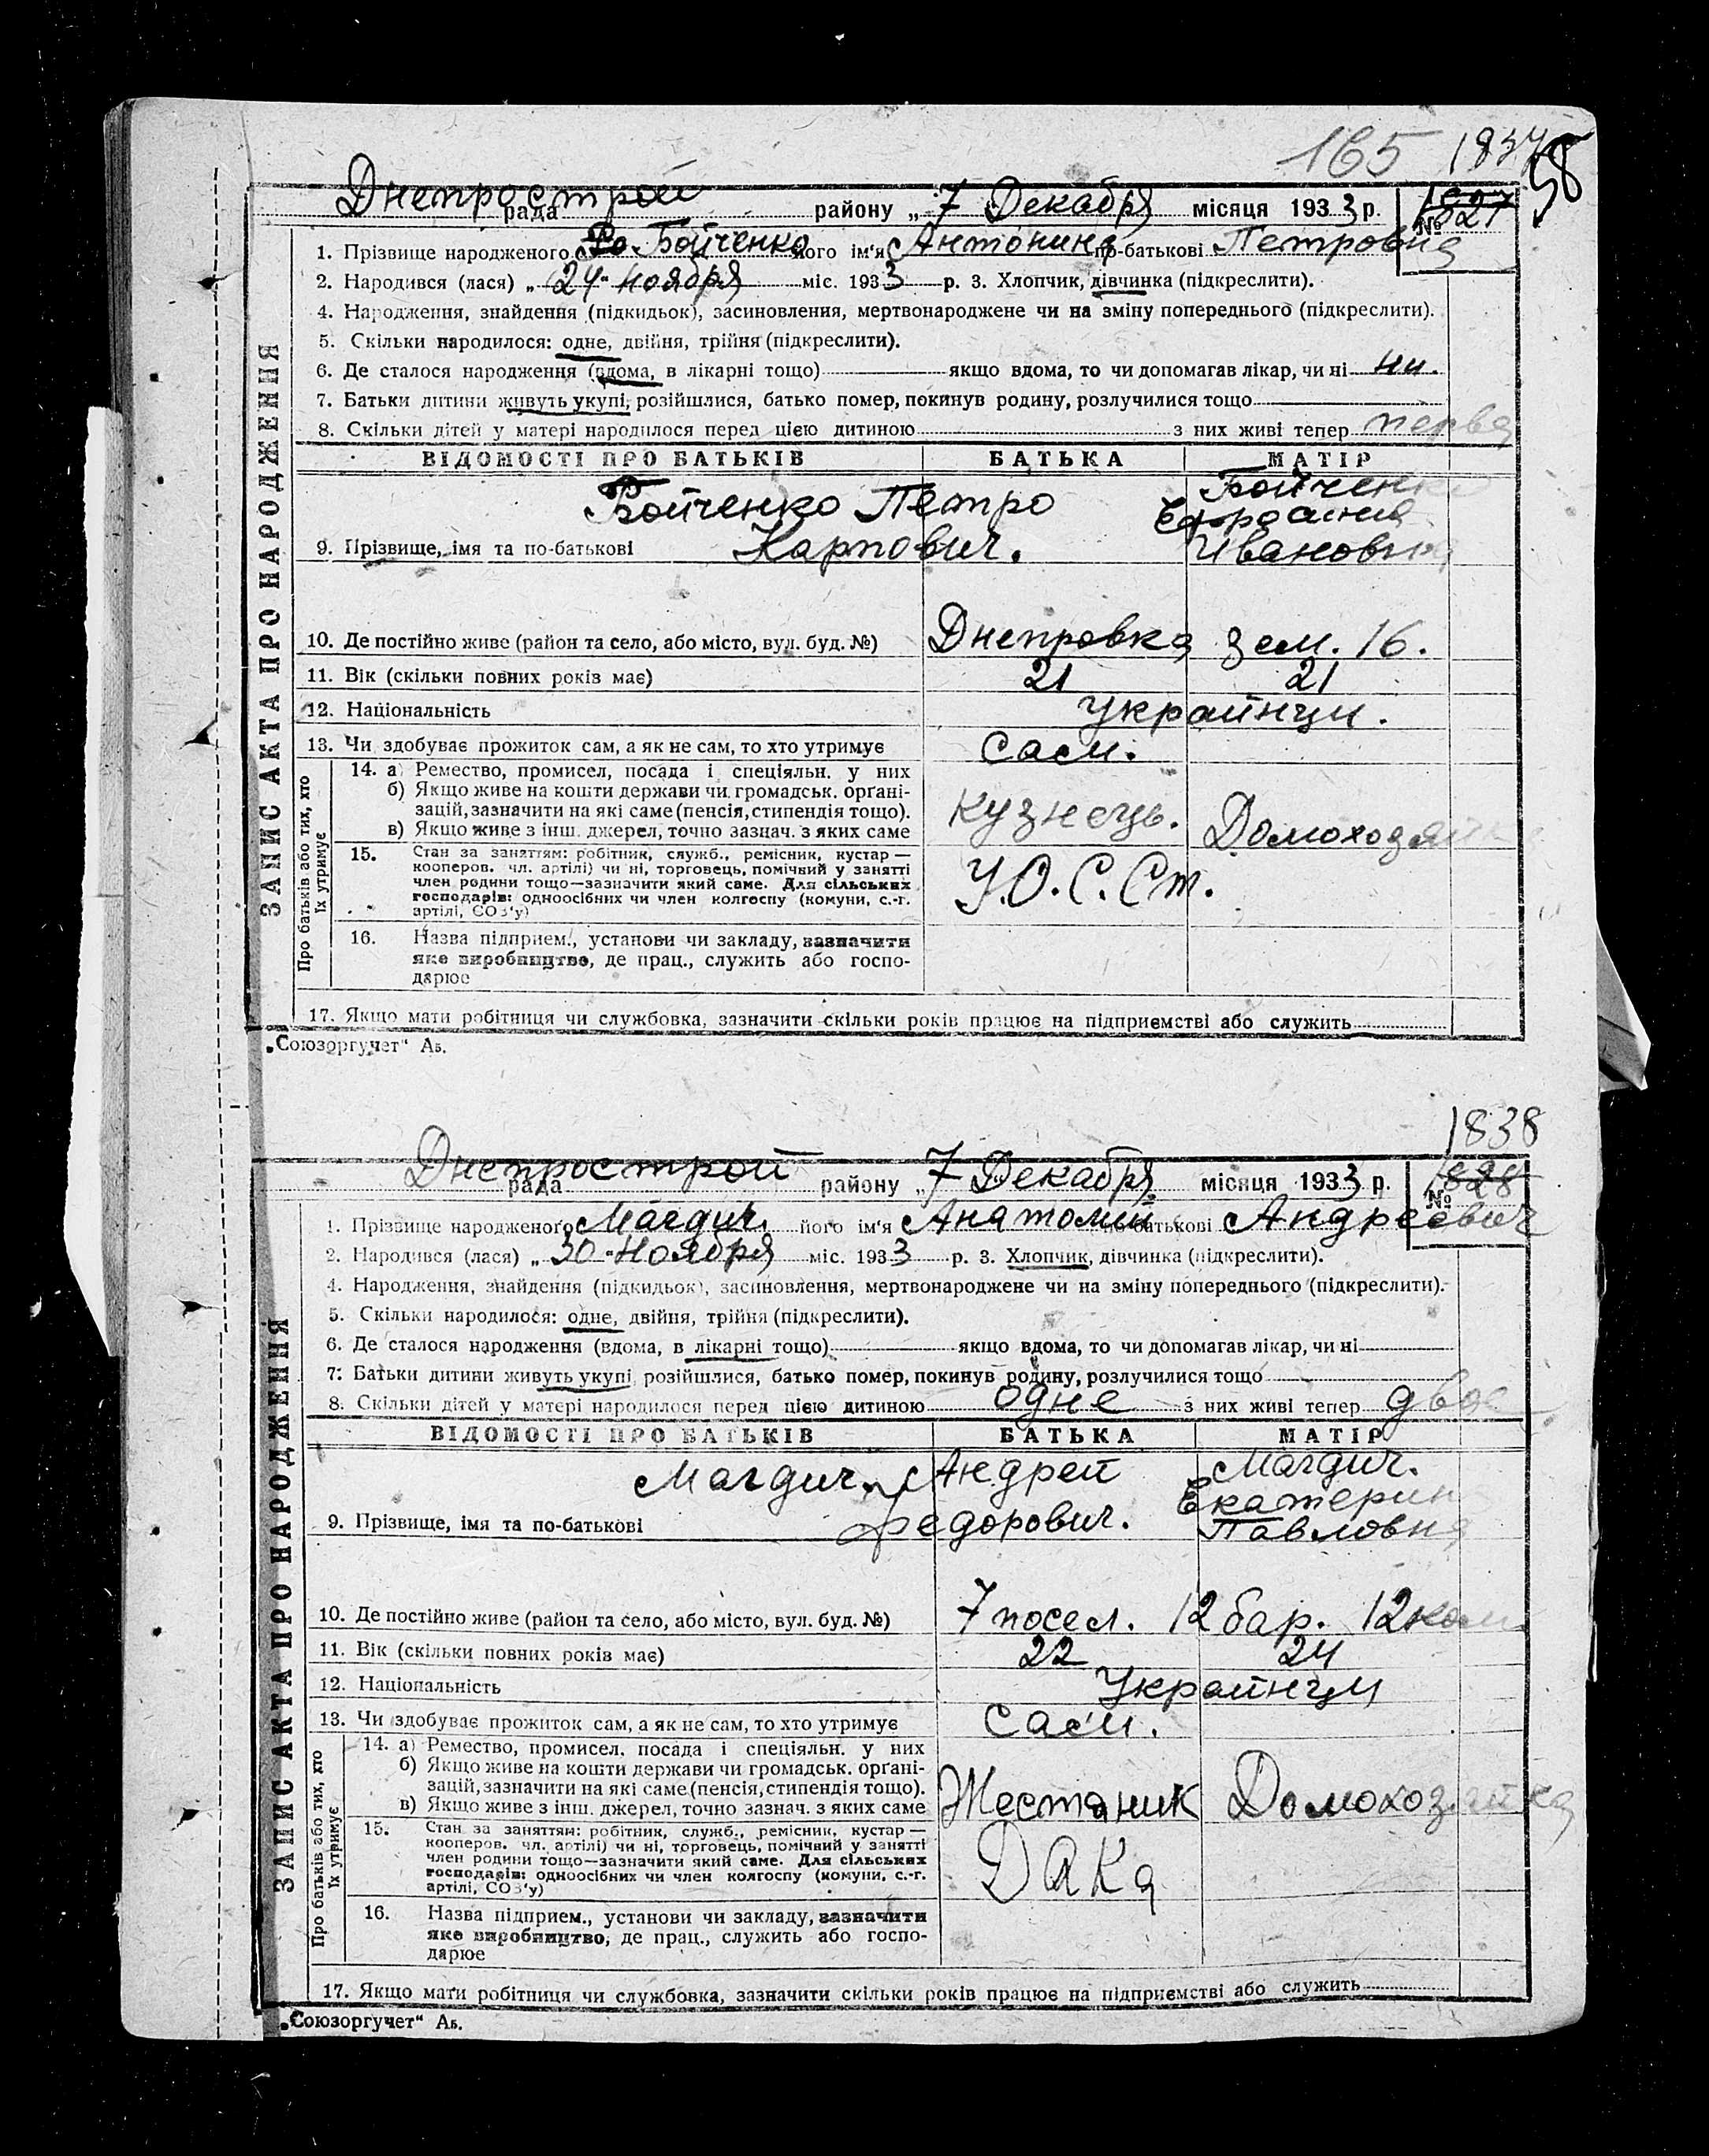 165 1837 58
Днепрострой
рада району „ 7 Декабря місяця 1933 р. № 1827
1. Прізвище народженого Бойченко його ім'я Антонина по-батькові Петровна
2. Народився (лася) „ 24 - ноября міс. 1933 р. 3. Хлопчик, дівчинка (підкреслити).
4. Народження, знайдення (підкидьок), засиновлення, мертвонароджене чи на зміну попереднього (підкреслити).
5. Скільки народилося: одне, двійня, трійня (підкреслити).
6. Де сталося народження (вдома, в лікарні тощо) якщо вдома, то чи допомагав лікар, чи ні ни.
7. Батьки дитини живуть укупі, розійшлися, батько помер, покинув родину, розлучилися тощо
8. Скільки дітей у матері народилося перед цією дитиною з них живі тепер перва
ЗАПИС АКТА ПРО НАРОДЖЕННЯ
ВІДОМОСТІ ПРО БАТЬКІВ БАТЬКА МАТІР
Бойченко Петро Бойченко
Ефросиния
9. Прізвище, імя та по-батькові Карпович. Ивановна
10. Де постійно живе (район та село, або місто, вул. буд. №) Днепровка Зем. 16.
11. Вік (скільки повних років має) 21 21
12. Національність украйнци.
13. Чи здобуває прожиток сам, а як не сам, то хто утримує сам.
Про батьків або тих, хто їх утримує
14. а) Ремество, промисел, посада і спеціяльн. у них
б) Якщо живе на кошти держави чи громадськ. орґані-
зацій, зазначити на які саме (пенсія, стипендія тощо). кузнець.
в) Якщо живе з інш. джерел, точно зазнач. з яких саме Домохозяйка
15. Стан за заняттям: робітник, служб., ремісник, кустар —
кооперов. чл. артілі) чи ні, торговець, помічний у занятті
член родини тощо—зазначити який саме. Для сільських У.О.С.Ст.
господарів: одноосібних чи член колгоспу (комуни, с.-г.
артілі, СОЗ'у)
16. Назва підприєм., установи чи закладу, зазначити
яке виробництво, де прац., служить або госпо-
дарює
17. Якщо мати робітниця чи службовка, зазначити скільки років працює на підприємстві або служить
„Союзоргучет“ Ав.
1838
Днепрострой
рада району „ 7 Декабря місяця 1933 р. № 1828
1. Прізвище народженого Магдич його ім'я Анатолий по-батькові Андреевич
2. Народився (лася) „ 30 - Ноября міс. 1933 р. 3. Хлопчик, дівчинка (підкреслити).
4. Народження, знайдення (підкидьок), засиновлення, мертвонароджене чи на зміну попереднього (підкреслити).
5. Скільки народилося: одне, двійня, трійня (підкреслити).
6. Де сталося народження (вдома, в лікарні тощо) якщо вдома, то чи допомагав лікар, чи ні
7. Батьки дитини живуть укупі, розійшлися, батько помер, покинув родину, розлучилися тощо
8. Скільки дітей у матері народилося перед цією дитиною одне з них живі тепер двое
ЗАПИС АКТА ПРО НАРОДЖЕННЯ
ВІДОМОСТІ ПРО БАТЬКІВ БАТЬКА МАТІР
Магдич Андрей Магдич.
Екатерина
9. Прізвище, імя та по-батькові Федорович. Павловна
10. Де постійно живе (район та село, або місто, вул. буд. №) 7 посел. 12 бар. 12 ком.
11. Вік (скільки повних років має) 22 24
12. Національність Украйнци
13. Чи здобуває прожиток сам, а як не сам, то хто утримує сам.
Про батьків або тих, хто їх утримує
14. а) Ремество, промисел, посада і спеціяльн. у них
б) Якщо живе на кошти держави чи громадськ. орґані-
зацій, зазначити на які саме (пенсія, стипендія тощо).
в) Якщо живе з інш. джерел, точно зазнач. з яких саме Жестяник Домохозяйка
15. Стан за заняттям: робітник, служб., ремісник, кустар —
кооперов. чл. артілі) чи ні, торговець, помічний у занятті
член родини тощо—зазначити який саме. Для сільських ДАКа
господарів: одноосібних чи член колгоспу (комуни, с.-г.
артілі, СОЗ'у)
16. Назва підприєм., установи чи закладу, зазначити
яке виробництво, де прац., служить або госпо-
дарює
17. Якщо мати робітниця чи службовка, зазначити скільки років працює на підприємстві або служить
„Союзоргучет“ Ав.